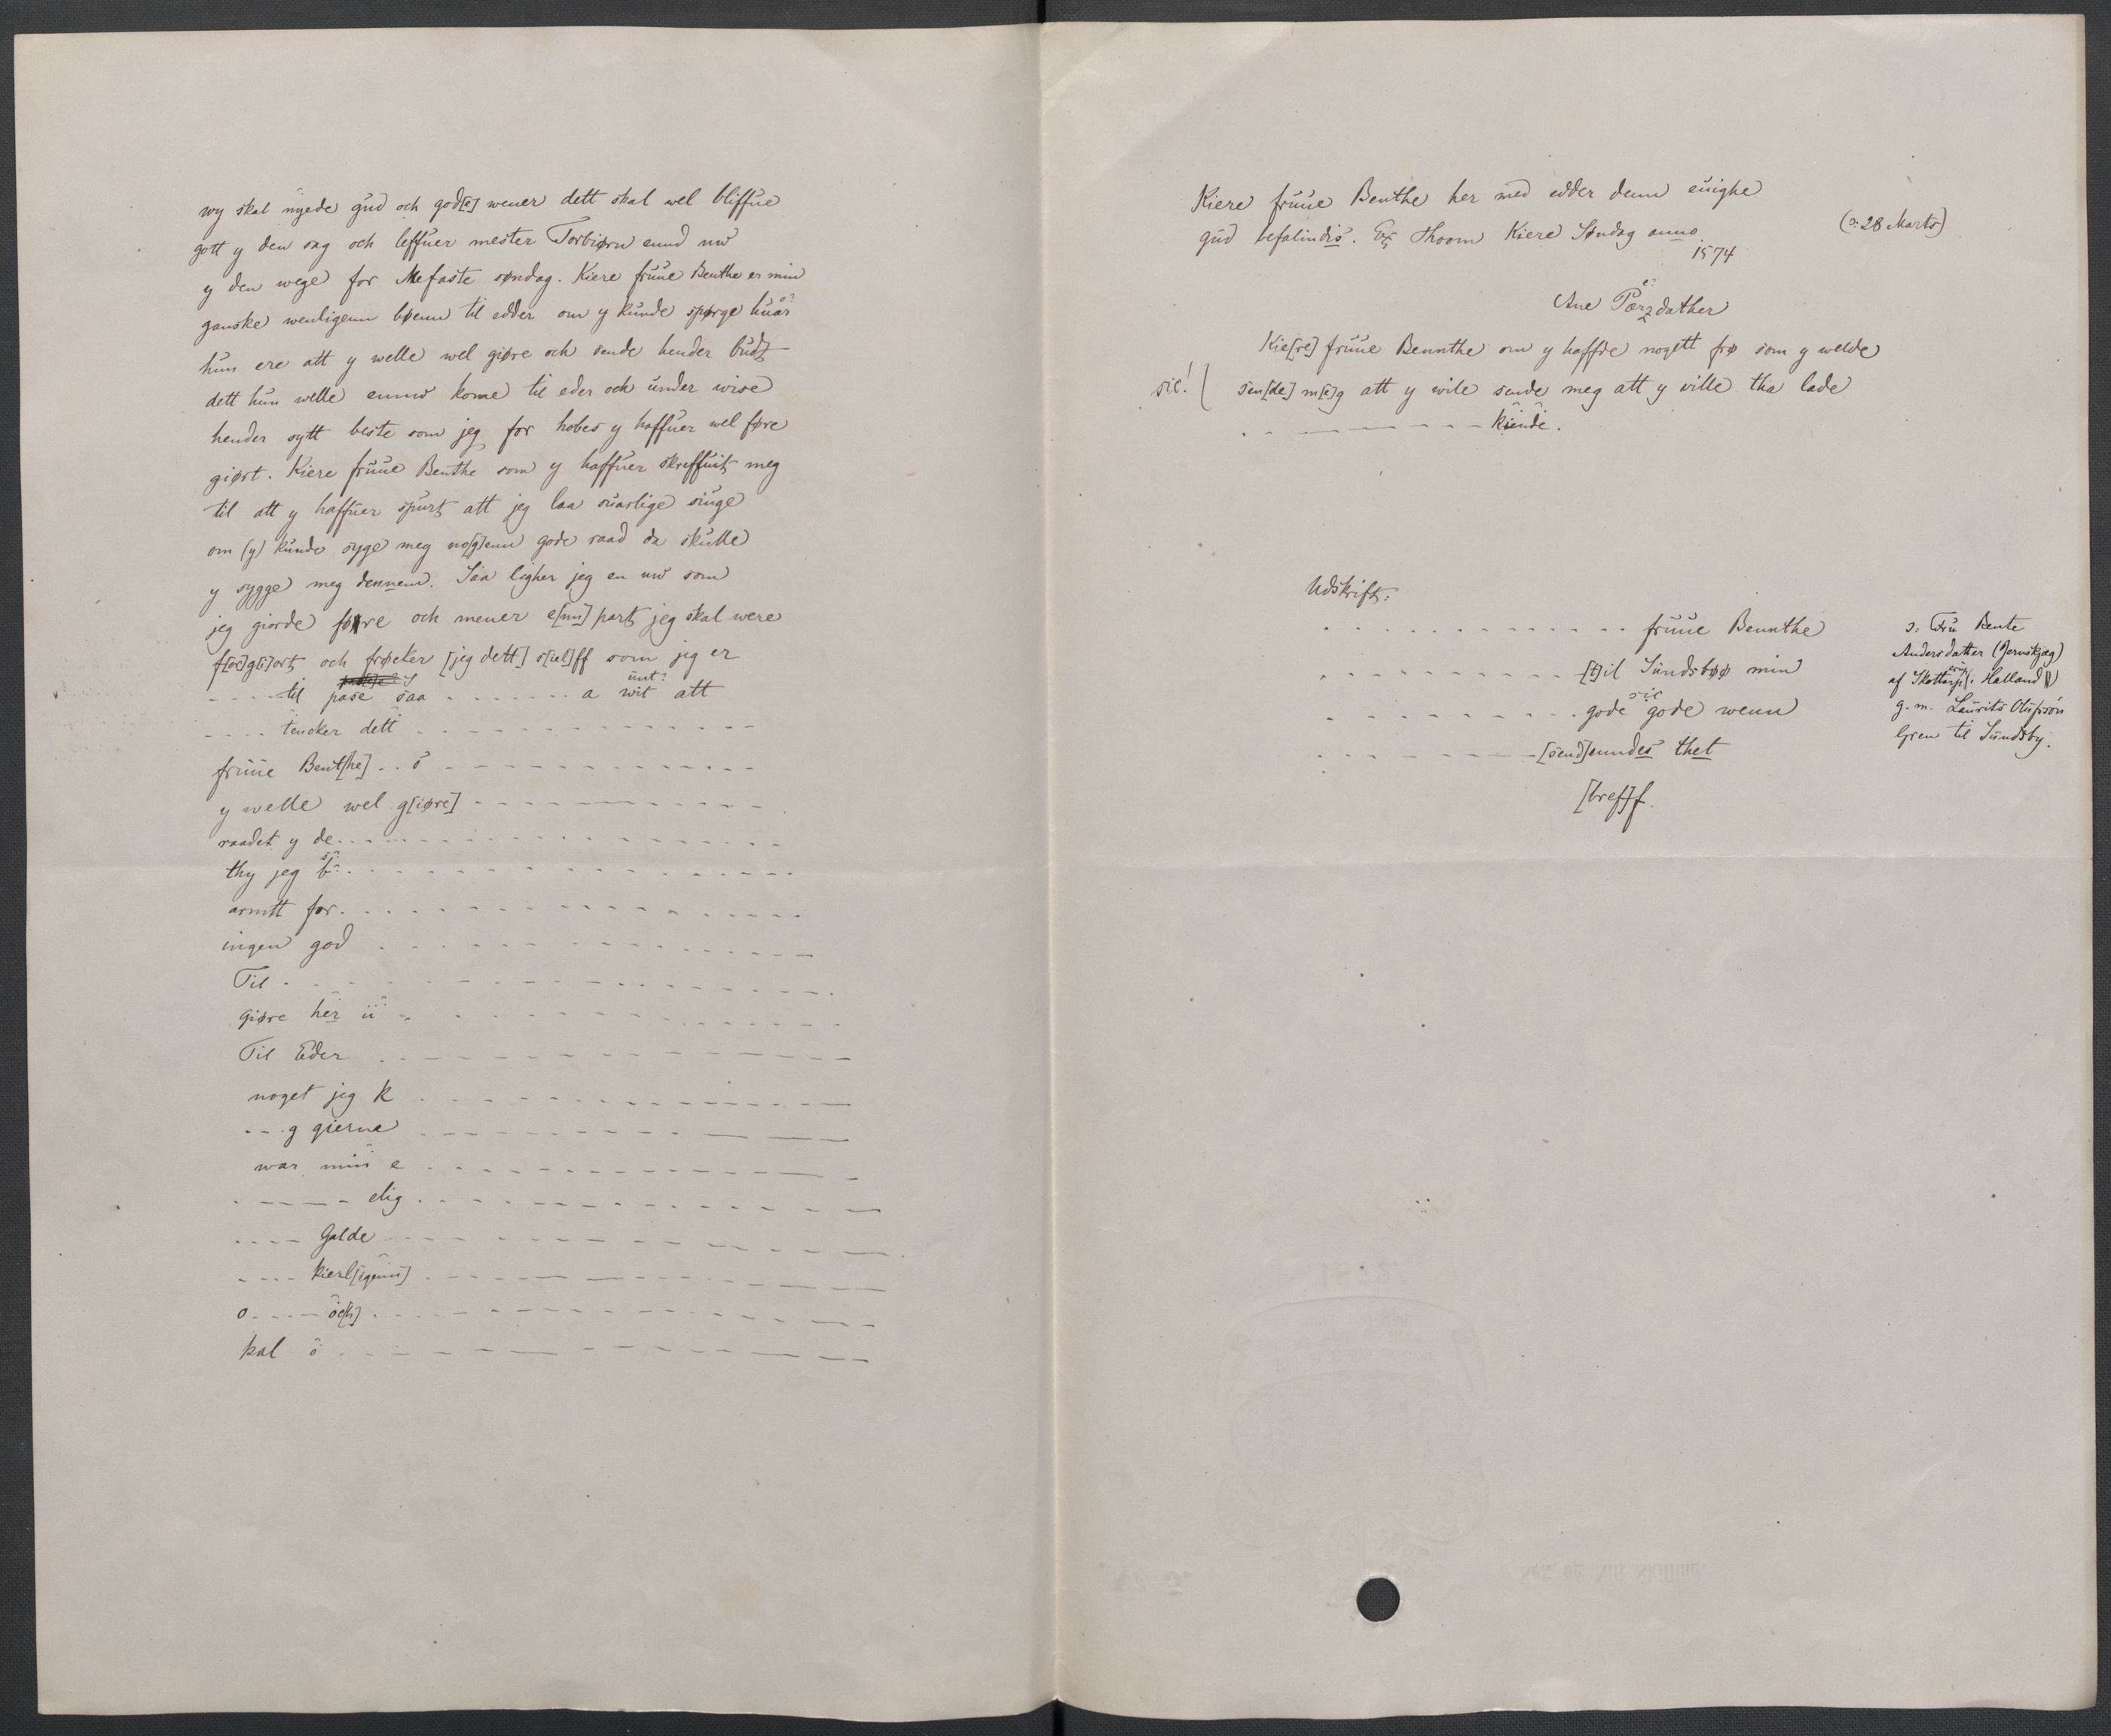 wy skal nyede gud och god[e] wener dett skal wel bliffue
gott y den sag och leffuer mester Torbiørn ennd nw
y den wege for Mefaste søndag. Kiere fruue Benthe er min
ganske wenligenn bøenn til edder om y kunde spørge huar
o?
hun ere att y welle wel giøre och sende hender budt
dett hun welle ennw kome til eder och under wise
hender sytt beste som jeg for hobes y haffuer wel føre
giørt. Kiere fruue Benthe som y haffuer skreffuit meg
til att y haffuer spurt att jeg laa suarlige siuge
om (y) kunde syge meg no[g]enn gode raad da skulle
y sygge meg dennem. Saa ligher jeg en nw som
jeg giorde føre och mener e[nn] part jeg skal were
f[or]g[i]ort och frøcter [jeg dett] s[iel]ff som jeg er
- - - - til pase saa . . . . . . . a wit att
unt?
- - - - tencker dett - - - - - - - -
fruue Bent[he] . . s - - - - - - - -
y welle wel g[iøre] - - - - - - - -
raadet y de - - - - - - - -
thy jeg b - - - - - - - -
armtt for - - - - - - - -
ingen god - - - - - - - -
Til - - - - - - - -
giøre her u - - - - - - - -
Til Eder - - - - - - - -
noget jeg k - - - - - - - -
- - - g gierne - - - - - - - -
war min e - - - - - - - -
- - - - elig - - - - - - - -
- - - - Galde - - - - - - - -
- - - - kierl[igenn] - - - - - - - -
o - - - - oc[h] - - - - - - - -
kal s - - - - - - - -
Kiere fruue Benthe her med edder denn euighe
gud befalindis. Ex Thoom Kiere Søndag anno
1574
(ɔ: 28 Marts)
e?
Ane Pærzdather
Kie[re] fruue Bennthe om y haffde nogett frø som y welde
sic! ( sen[de] m[e]g att y wile sende meg att y ville tha lade
- - - - - - - - kiende.
Udskrift:
. . . . . . . . fruue Bennthe
. . . . . . . . [t]il Sundsbøø min
sic
. . . . . . . . gode gode wenn
. . . . . . . . [send]enndes thet
[bref]f.
ɔ: Fru Bente
Andersdatter (Jernskjæg)
af Skottarp (i Halland)
erup
g. m. Laurits Olufssøn
Green til Sundsby.